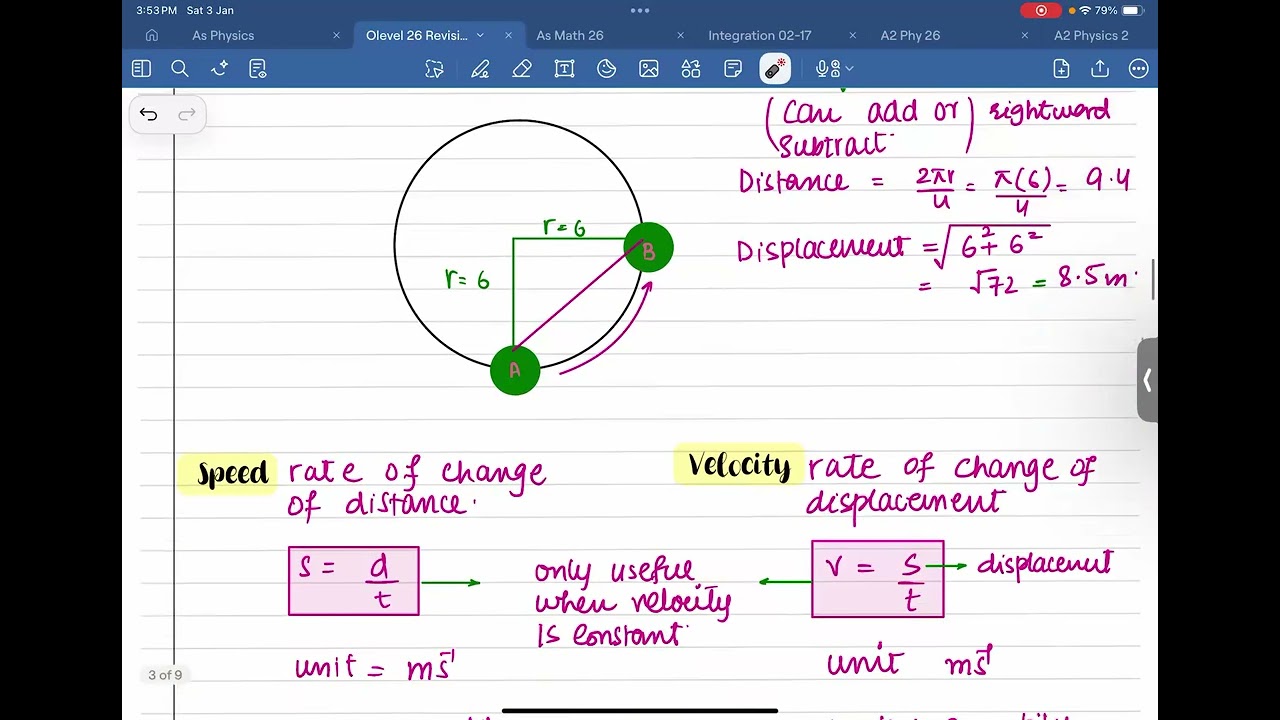 3:53 PM Sat 3 Jan
79%
As Physics
Olevel 26 Revisi...
As Math 26
Integration 02-17
A2 Phy 26
A2 Physics 2
(Can add or) rightward
subtract
Distance = 2πr/4 = π(6)/4 = 9.4
r= 6
B
Displacement = √6² + 6²
r= 6
= √72 = 8.5m
A
Speed rate of change
of distance.
Velocity rate of change of
displacement
s = d/t
only useful
when velocity
is constant
v = s/t → displacement
unit = ms⁻¹
unit ms⁻¹
3 of 9